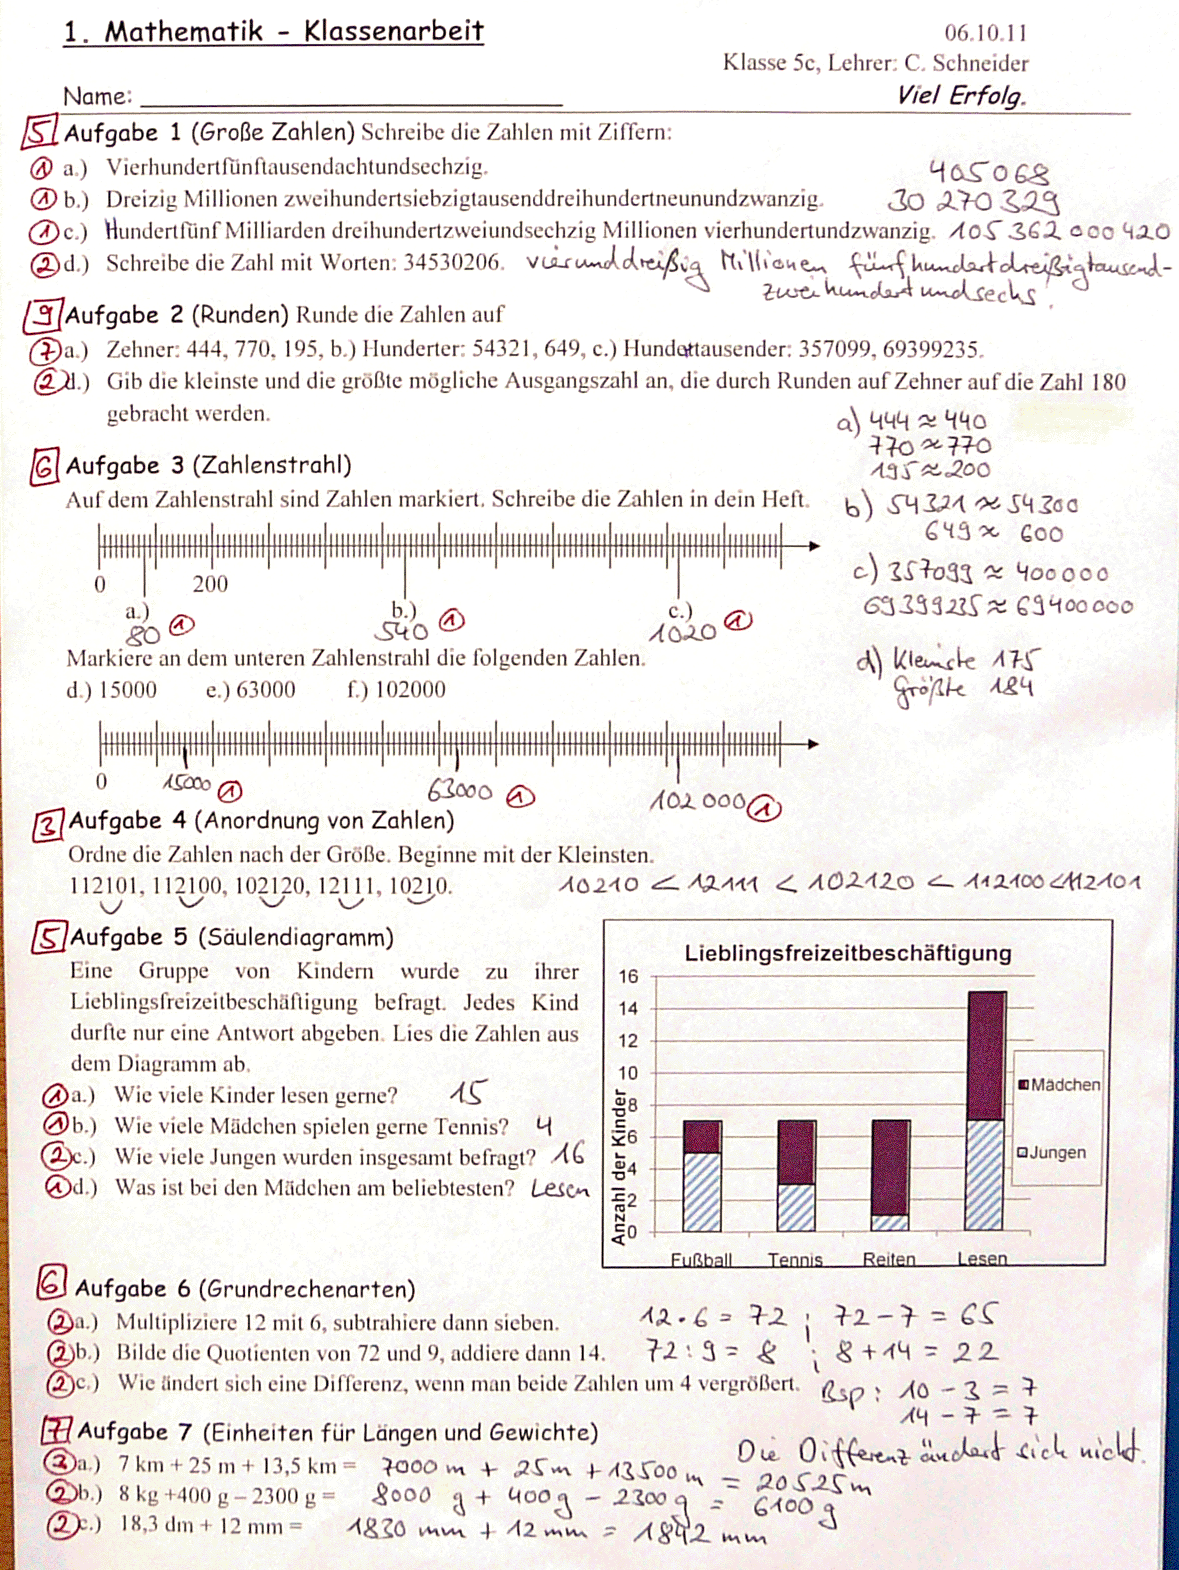 1. Mathematik - Klassenarbeit 06.10.11
Klasse 5c, Lehrer: C. Schneider
Name: Viel Erfolg.
5 Aufgabe 1 (Große Zahlen) Schreibe die Zahlen mit Ziffern:
1 a.) Vierhundertfünftausendachtundsechzig. 405068
1 b.) Dreizig Millionen zweihundertsiebzigtausenddreihundertneunundzwanzig. 30 270 329
1 c.) Hundertfünf Milliarden dreihundertzweiundsechzig Millionen vierhundertundzwanzig. 105 362 000 420
2 d.) Schreibe die Zahl mit Worten: 34530206. vierunddreißig Millionen fünfhundertdreißigtausend-
zweihundertundsechs.
9 Aufgabe 2 (Runden) Runde die Zahlen auf
7 a.) Zehner: 444, 770, 195, b.) Hunderter: 54321, 649, c.) Hunderttausender: 357099, 69399235.
2 d.) Gib die kleinste und die größte mögliche Ausgangszahl an, die durch Runden auf Zehner auf die Zahl 180
gebracht werden.
a) 444 ≈ 440
770 ≈ 770
195 ≈ 200
b) 54321 ≈ 54300
649 ≈ 600
c) 357099 ≈ 400000
69399235 ≈ 69400000
d) Kleinste 175
Größte 184
6 Aufgabe 3 (Zahlenstrahl)
Auf dem Zahlenstrahl sind Zahlen markiert. Schreibe die Zahlen in dein Heft.
0 200
a.) b.) c.)
80 1 540 1 1020 1
Markiere an dem unteren Zahlenstrahl die folgenden Zahlen.
d.) 15000 e.) 63000 f.) 102000
0 15000 1 63000 1 102 000 1
3 Aufgabe 4 (Anordnung von Zahlen)
Ordne die Zahlen nach der Größe. Beginne mit der Kleinsten.
112101, 112100, 102120, 12111, 10210. 10210 < 12111 < 102120 < 112100 < 112101
5 Aufgabe 5 (Säulendiagramm)
Eine Gruppe von Kindern wurde zu ihrer
Lieblingsfreizeitbeschäftigung befragt. Jedes Kind
durfte nur eine Antwort abgeben. Lies die Zahlen aus
dem Diagramm ab.
1 a.) Wie viele Kinder lesen gerne? 15
1 b.) Wie viele Mädchen spielen gerne Tennis? 4
2 c.) Wie viele Jungen wurden insgesamt befragt? 16
1 d.) Was ist bei den Mädchen am beliebtesten? Lesen
Lieblingsfreizeitbeschäftigung
Anzahl der Kinder
16
14
12
10
8
6
4
2
0
Fußball Tennis Reiten Lesen
Mädchen
Jungen
6 Aufgabe 6 (Grundrechenarten)
2 a.) Multipliziere 12 mit 6, subtrahiere dann sieben. 12 · 6 = 72 ; 72 - 7 = 65
2 b.) Bilde die Quotienten von 72 und 9, addiere dann 14. 72 : 9 = 8 ; 8 + 14 = 22
2 c.) Wie ändert sich eine Differenz, wenn man beide Zahlen um 4 vergrößert. Bsp: 10 - 3 = 7
14 - 7 = 7
Die Differenz ändert sich nicht.
7 Aufgabe 7 (Einheiten für Längen und Gewichte)
3 a.) 7 km + 25 m + 13,5 km = 7000 m + 25 m + 13500 m = 20525 m
2 b.) 8 kg +400 g – 2300 g = 8000 g + 400 g - 2300 g = 6100 g
2 c.) 18,3 dm + 12 mm = 1830 mm + 12 mm = 1842 mm